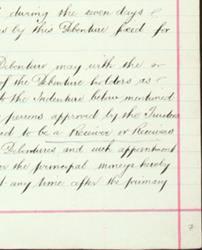 during the seven days
by this Debenture fixed for
Debenture may with the
of the Debenture holders as
the Indenture below mentioned
persons approved by the Trustees
to be a Receiver or Receivers
Debentures and such appointment
the principal moneys hereby
at any time after the primary